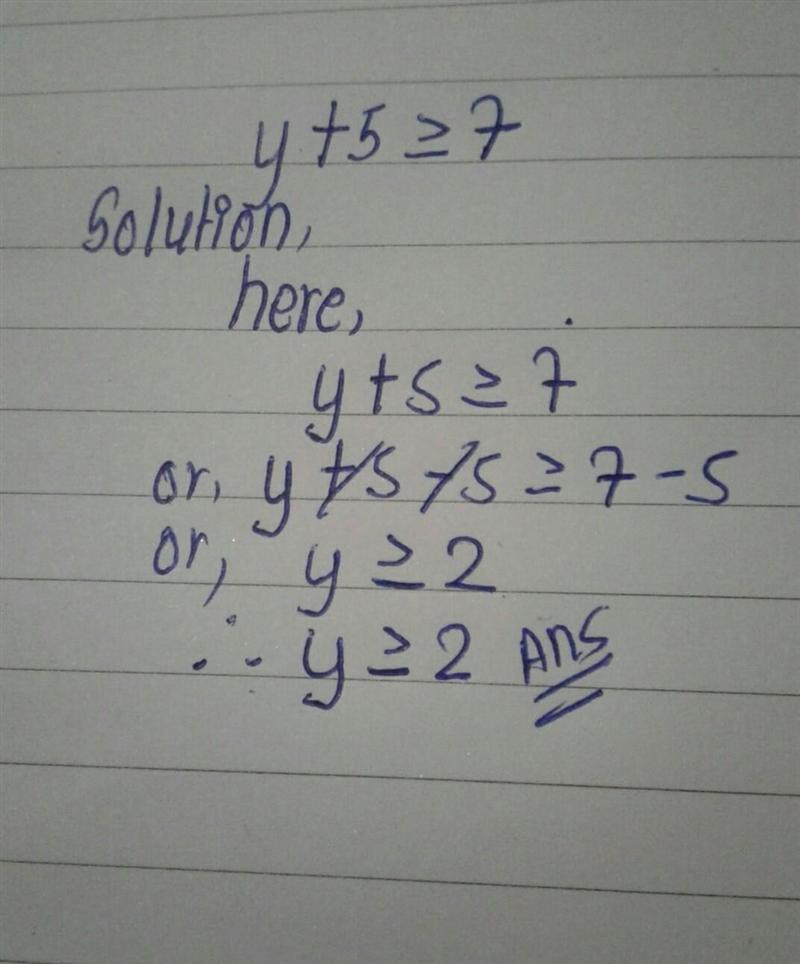 y+5 ≥ 7
Solution,
here,
y+5 ≥ 7
or, y+5-5 ≥ 7-5
or, y ≥ 2
∴ y ≥ 2 Ans